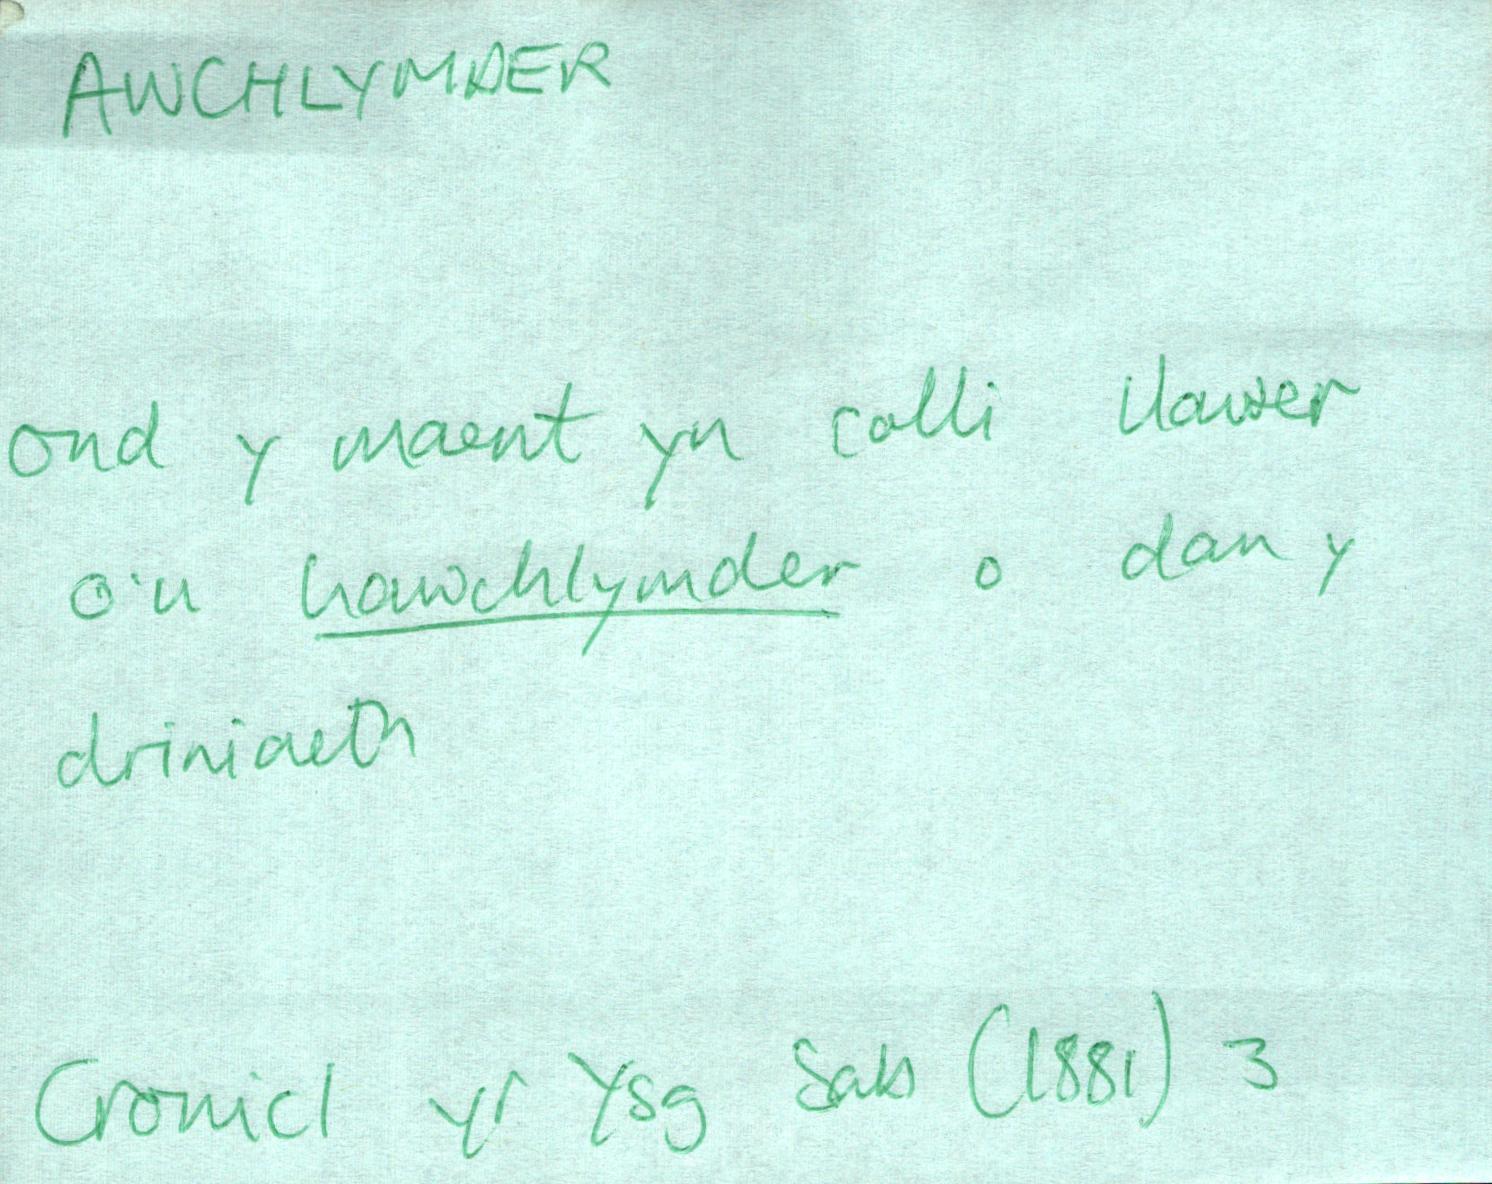 AWCHLYMDER
ond y maent yn colli llawer
o'u hawchlymder o dan y
driniaeth
Cronicl yr Ysg Sab (1881) 3